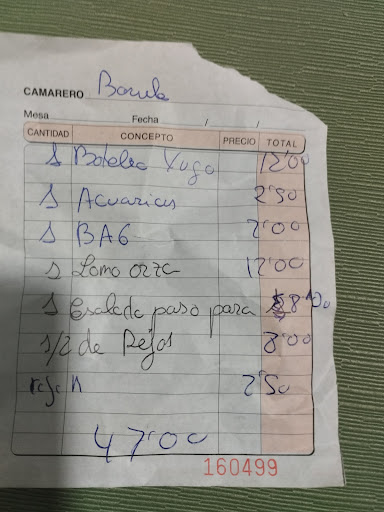 CAMARERO Borule
Mesa Fecha / /
CANTIDAD CONCEPTO PRECIO TOTAL
1 Botella Yugo 12'00
1 Acuarius 2'50
1 BA6 2'00
1 Lomo orza 12'00
1 Ensalada paso para 8'00
1/2 de Rejos 8'00
2'50
47'00
160499